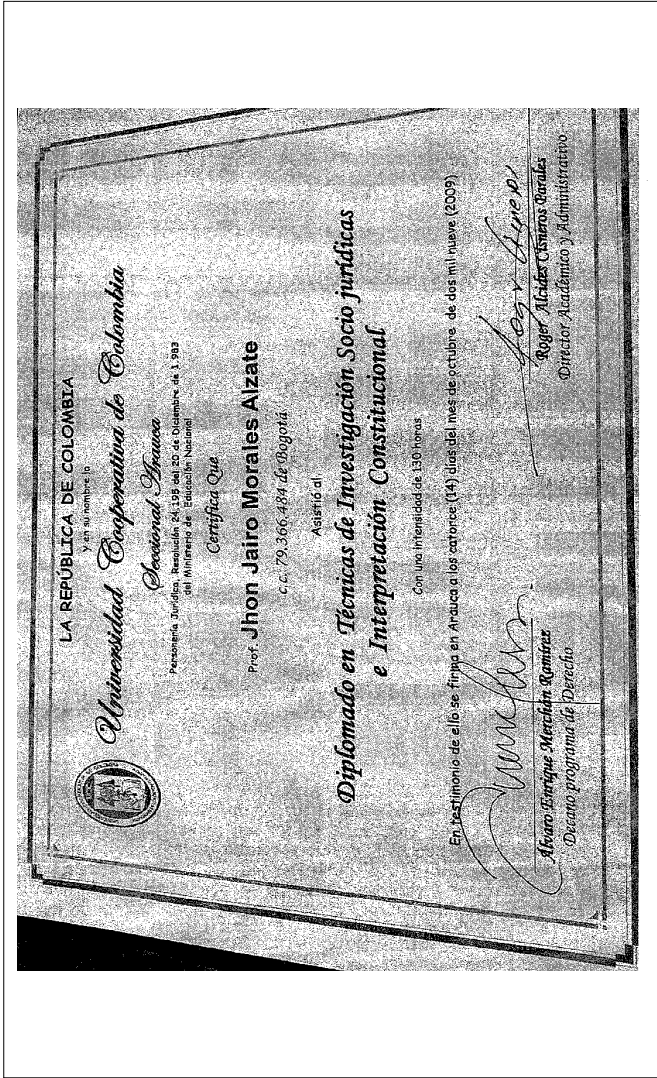 LA REPÚBLICA DE COLOMBIA
y en su nombre la
Universidad Cooperativa de Colombia
Seccional Arauca
Personería Jurídica. Resolución 24.195 del 20 de Diciembre de 1.983
del Ministerio de Educación Nacional
Certifica Que
Prof. Jhon Jairo Morales Alzate
c.c. 79.366.484 de Bogotá
Asistió al
Diplomado en Técnicas de Investigación Socio jurídicas
e Interpretación Constitucional
Con una intensidad de 130 horas
En testimonio de ello se firma en Arauca a los catorce (14) días del mes de octubre de dos mil nueve (2009)
Álvaro Enrique Merchán Ramírez
Decano programa de Derecho
Roger Alcides Cisneros Parales
Director Académico y Administrativo